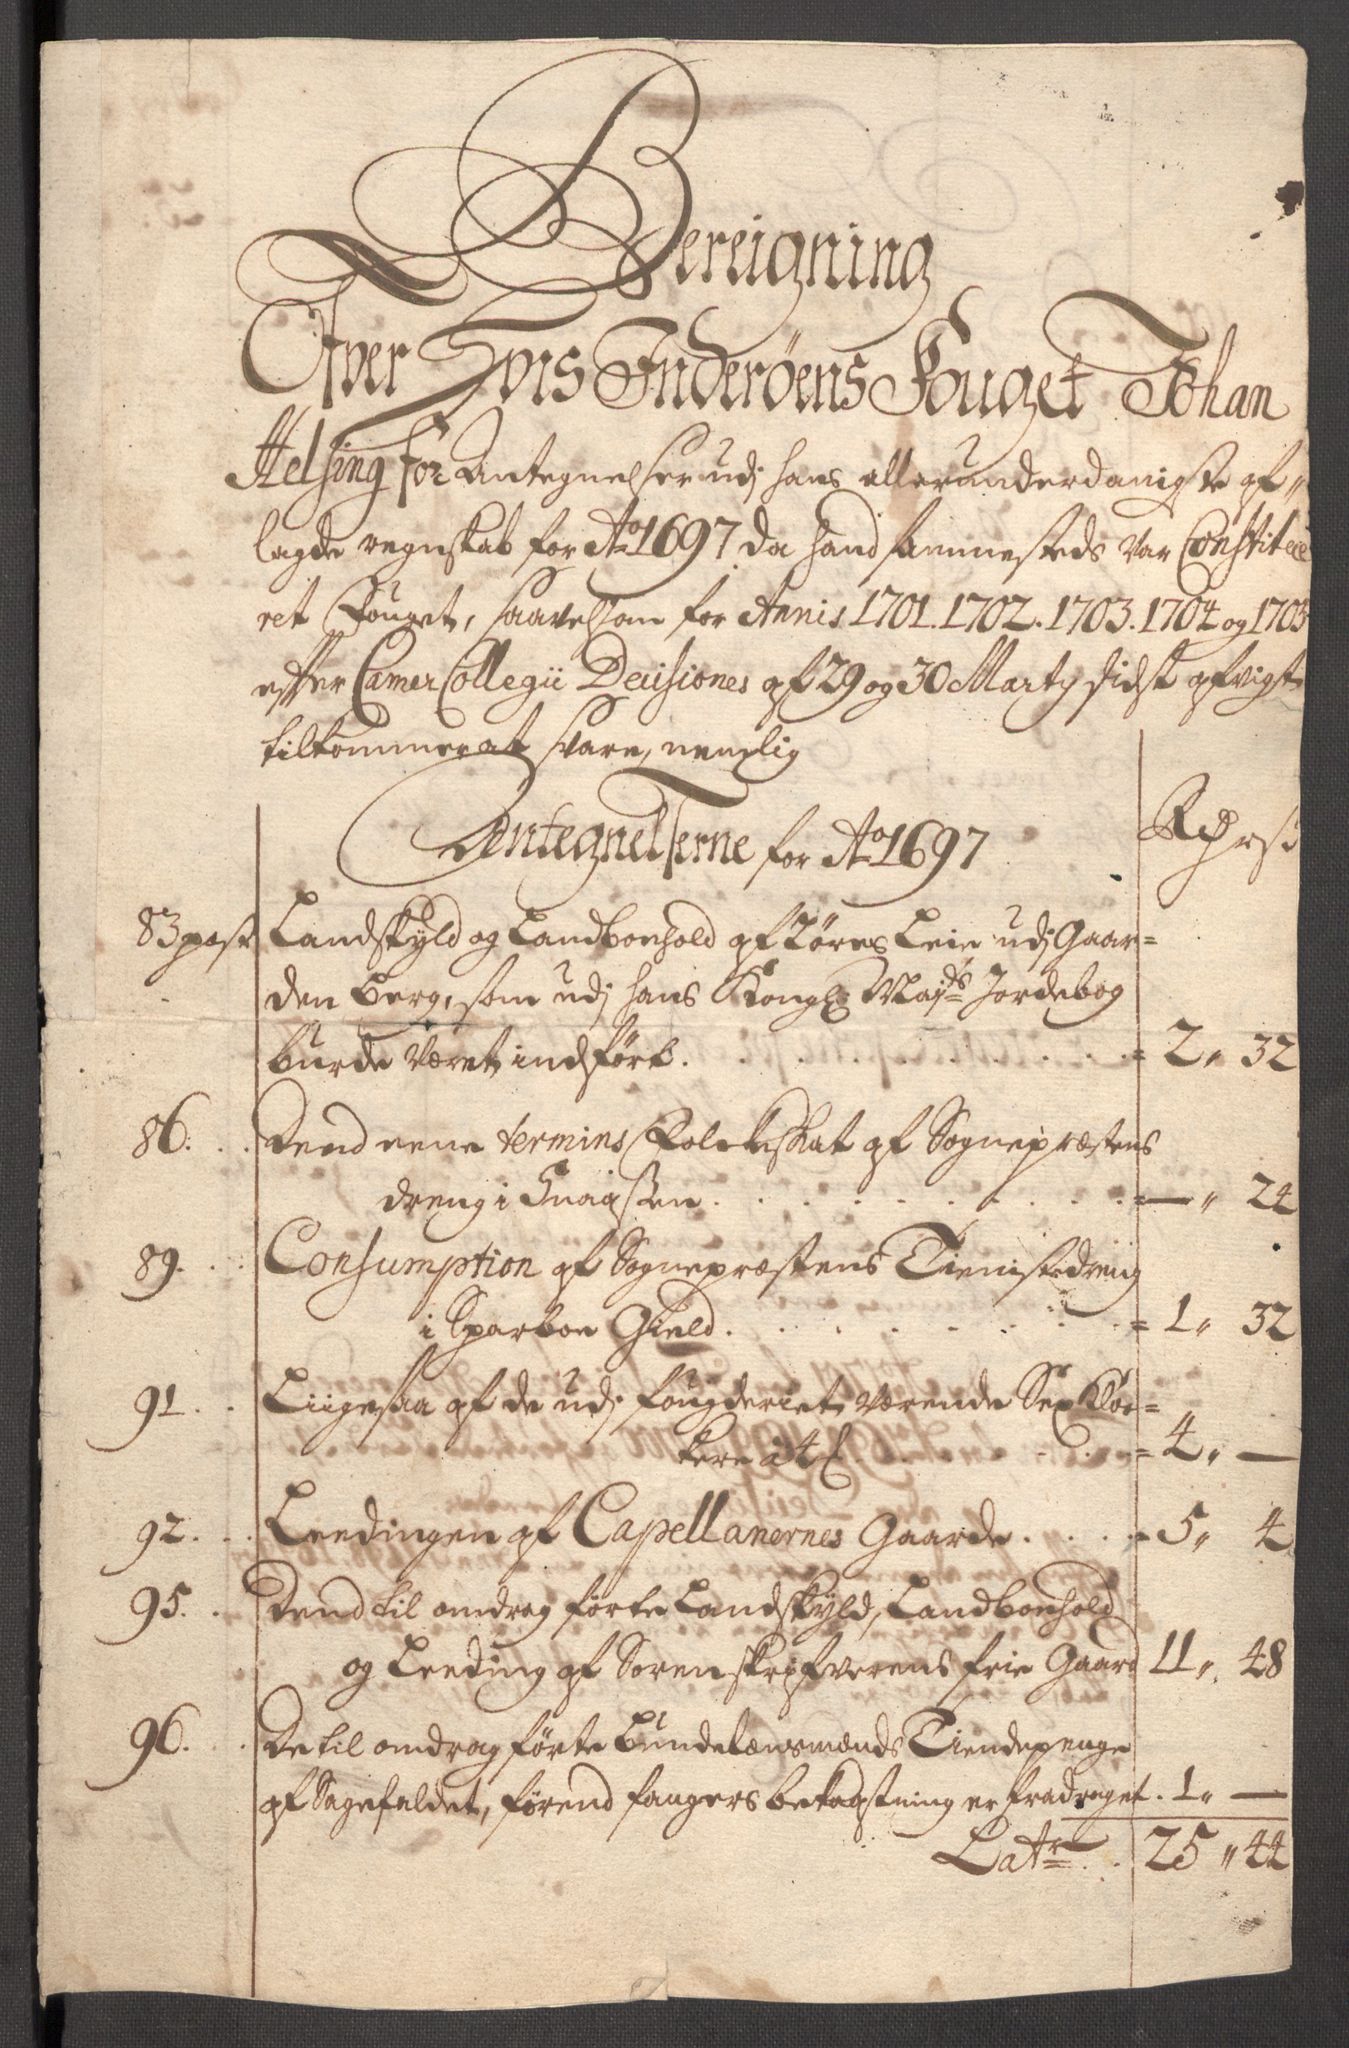 Bereigning
Ofver Hvis Inderöens Fouget Johan
Helsing for Antegnelser udj hans allerunderdanigste af-
lagde regnskab for Ao 1697 da hand sammesteds var Constitue
ret Fouget, saavelsom for Annis 1701. 1702. 1703. 1704 og 1705
effter Camer Collegii Decisiones af 29 og 30 Marty sidst afvigt
tilkommer at svare, nemlig
Antegnelserne for Ao 1697
Rdr ss
83 post Landskyld og Landbonhold af 2 øres Leie udj Gaar=
den Berg, som udj hans Kongl Majts Jordebog
burde været indført. = 2 " 32
86. Dend eene termins Folckeskat af Sognepræstens
dreng i Snaasen = — " 24
89. Consumption af Sognepræstens Tienistedreng
i Sparboe Gield. = 1 " 32
91. Liigesaa af de udj fougderiet værende Sex Kloc=
kere à 4 = 4 " —
92. Leedingen af Capellanernes Gaarde = 5 " 4
95. Dend til omdrag førte Landskyld, Landbonhold
og Leeding af Sorenskrifverens frie Gaard 11 " 48
96. De til omdrag førte Bundelænsmænds Tiendepenge
af Sagefaldet, førend fangers bekostning er fradraget. 1 " —
Latr 25 " 44